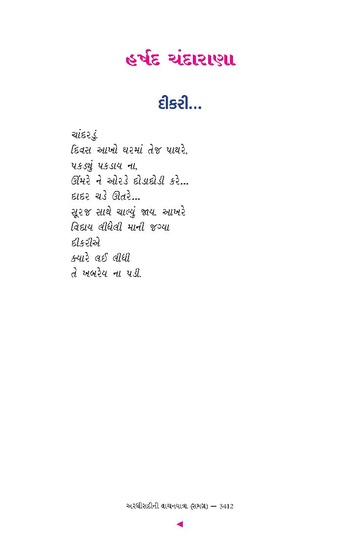 હર્ષદ ચંદારાણા
દીકરી...
ચાંદરડું
દિવસ આખો ઘરમાં તેજ પાથરે.
પકડ્યું પકડાય ના.
ઊંમરે ને ઓરડે દોડાદોડી કરે...
દાદર ચડે ઊતરે...
સૂરજ સાથે ચાલ્યું જાય. આખરે
વિદાય લીધેલી માની જગ્યા
દીકરીએ
ક્યારે લઈ લીધી
તે ખબરેય ના પડી.
અરધીસદીની વાચનયાત્રા (સમગ્ર) — 3412